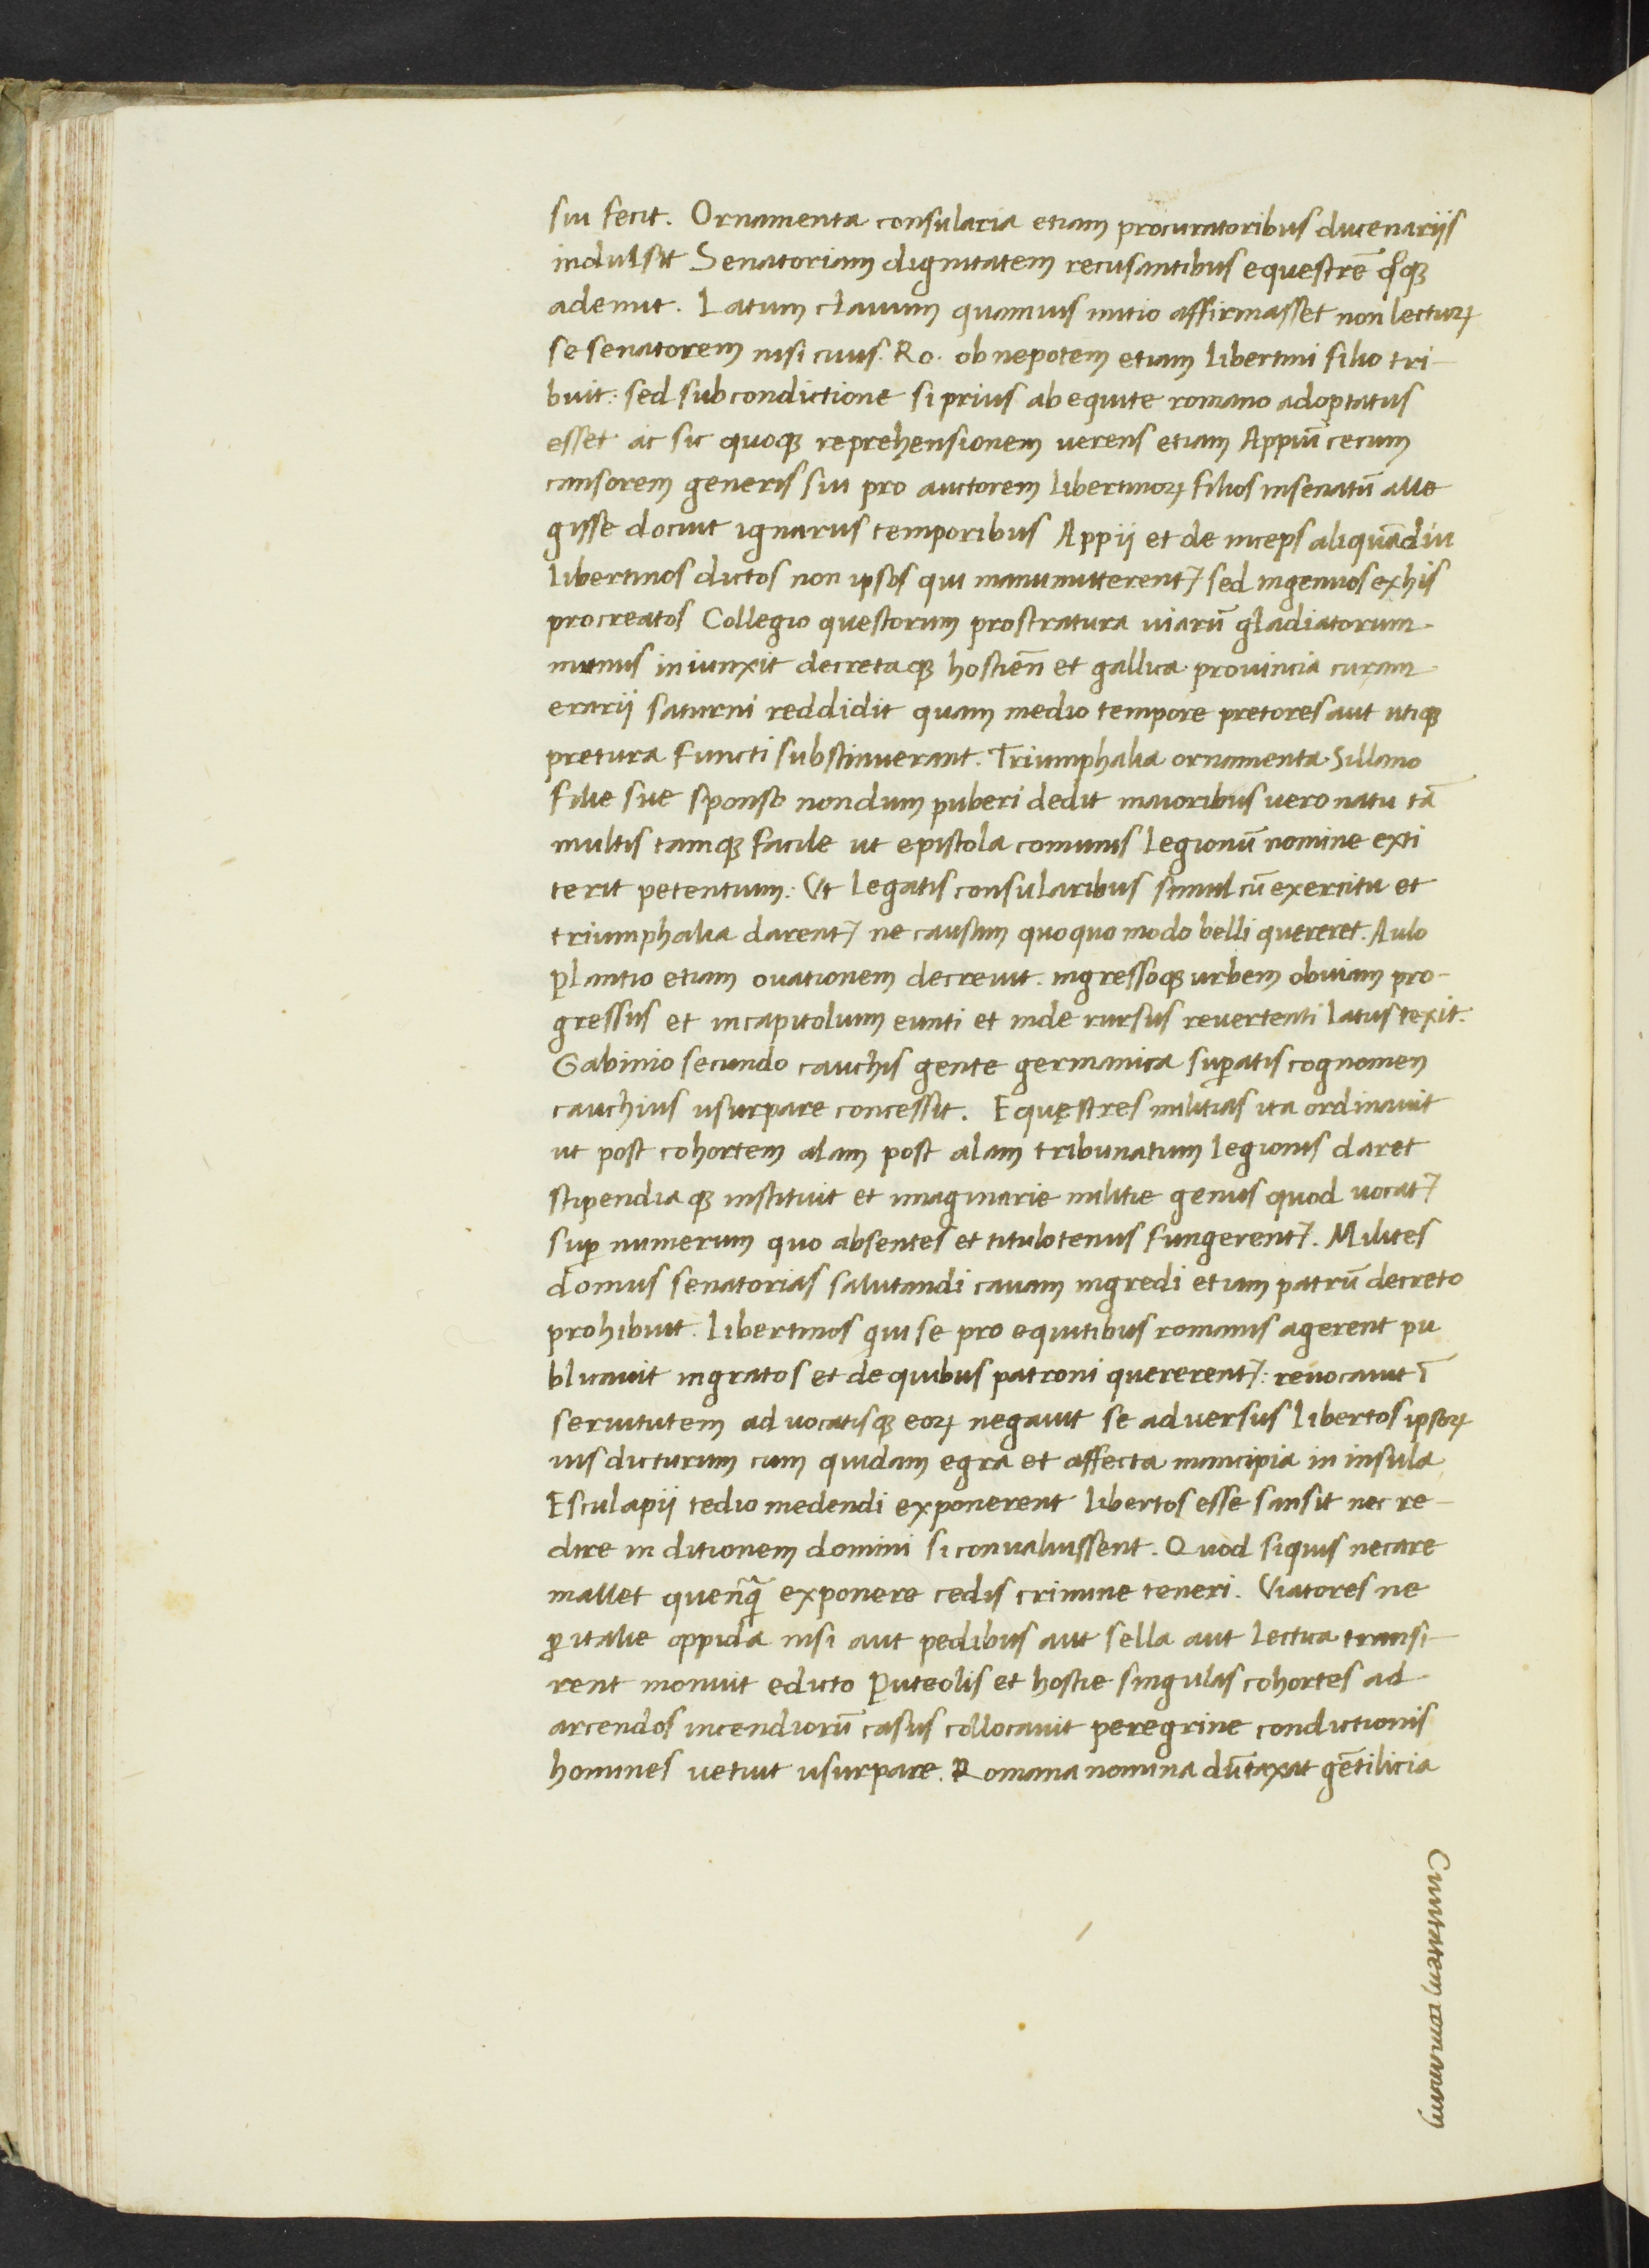 sui fecit. Ornamenta consularia etiam procuratoribus ducenariis
indulsit Senatoriam dignitatem recusantibus equestrē qͦqꝫ
ademit. Latum clauum quamuis initio affirmasset non lecturꝝ
se senatorem nisi ciuis. Ro. ob nepotem etiam libertini filio tri-
buit: sed sub condictione si prius ab equite romano adoptatus
esset ac sic quoqꝫ reprehensionem uerens etiam Appiū cecum
censorem generis sui pro auctorem libertinoꝝ filios in senatū alle
gisse docuit ignarus temporibus Appii et deinceps aliquādiu
libertinos dictos non ipsos qui manumitterent᷑ sed ingenuos ex his
procreatos Collegio questorum prostratura uiarū gladiatorum
munus iniunxit decretaqꝫ hostieñ et gallica prouincia curam
erarii saturni reddidit quam medio tempore pretores aut utiqꝫ
pretura functi substinuerant. Triumphalia ornamenta Sillano
filie sue sponso nondum puberi dedit maioribus uero natu tā
multis tamqꝫ facile ut epistola comunis legionū nomine exti
terit petentium: Ut legatis consularibus simul cū exercitu et
triumphalia darent᷑ ne causam quoquo modo belli quereret. Aulo
plantio etiam ouationem decreuit. ingressoqꝫ urbem obuiam pro-
gressus et in capitolium eunti et inde rursus reuertenti latus texit.
Gabinio secundo cauchis gente germanica suꝑatis cognomen
cauchius usurpare concessit. Equęstres militias ita ordinauit
ut post cohortem alam post alam tribunatum legionis daret
stipendiaqꝫ instituit et imaginarie militie genus quod uocat᷑
suꝑ numerum quo absentes et titulotenus fungerent᷑. Milites
domus senatorias salutandi cauam ingredi etiam patrū decreto
prohibuit. Libertinos qui se pro equitibus romanis agerent pu
blicauit ingratos et de quibus patroni quererent᷑: reuocauit ī
seruitutem aduocatisqꝫ eoꝝ negauit se aduersus libertos ipsoꝝ
ius dicturum cum quidam egra et affecta mancipia in insula
Esculapii tedio medendi exponerent libertos esse sansit nec re-
dire in ditionem domini si conualuissent. Quod siquis necare
mallet quenꝗ̄ exponere cedis crimine teneri. Viatores ne
ꝑ italie oppida nisi aut pedibus aut sella aut lectica transi-
rent monuit edicto Puteolis et hostie singulas cohortes ad
arcendos incendiorū casus collocauit peregrine condictionis
homines uetuit usurpare. Romana nomina dūtaxat gētilicia
Ciuitatem romanam